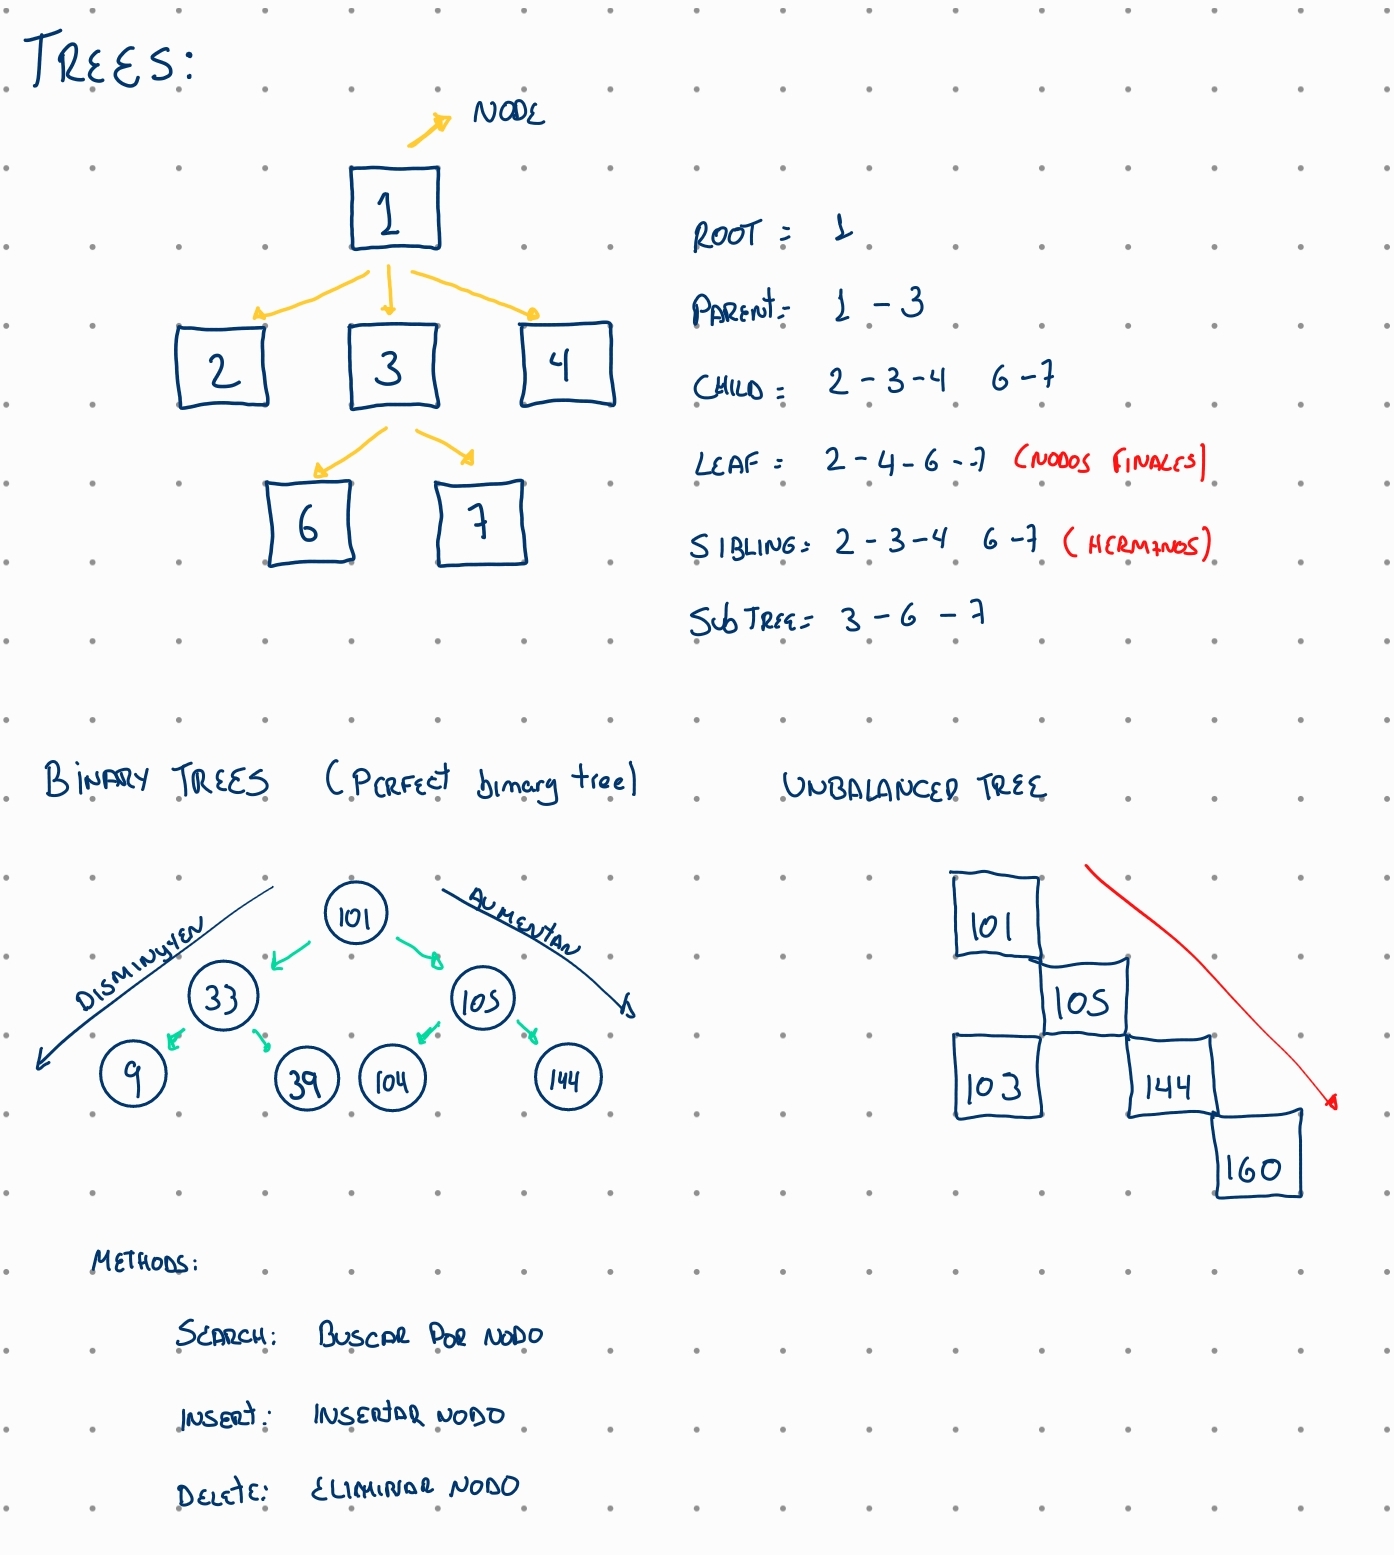 TREES:
NODE
1
2 3 4
6 7
ROOT = 1
PARENT = 1 - 3
CHILD = 2 - 3 - 4 6 - 7
LEAF = 2 - 4 - 6 - 7 (NODOS FINALES)
SIBLING = 2 - 3 - 4 6 - 7 (HERMANOS)
SUBTREE = 3 - 6 - 7
BINARY TREES (PERFECT binary tree)
DISMINUYEN
AUMENTAN
101
33 105
9 39 104 144
UNBALANCED TREE
101
105
103 144
160
METHODS:
SEARCH: BUSCAR POR NODO
INSERT: INSERTAR NODO
DELETE: ELIMINAR NODO